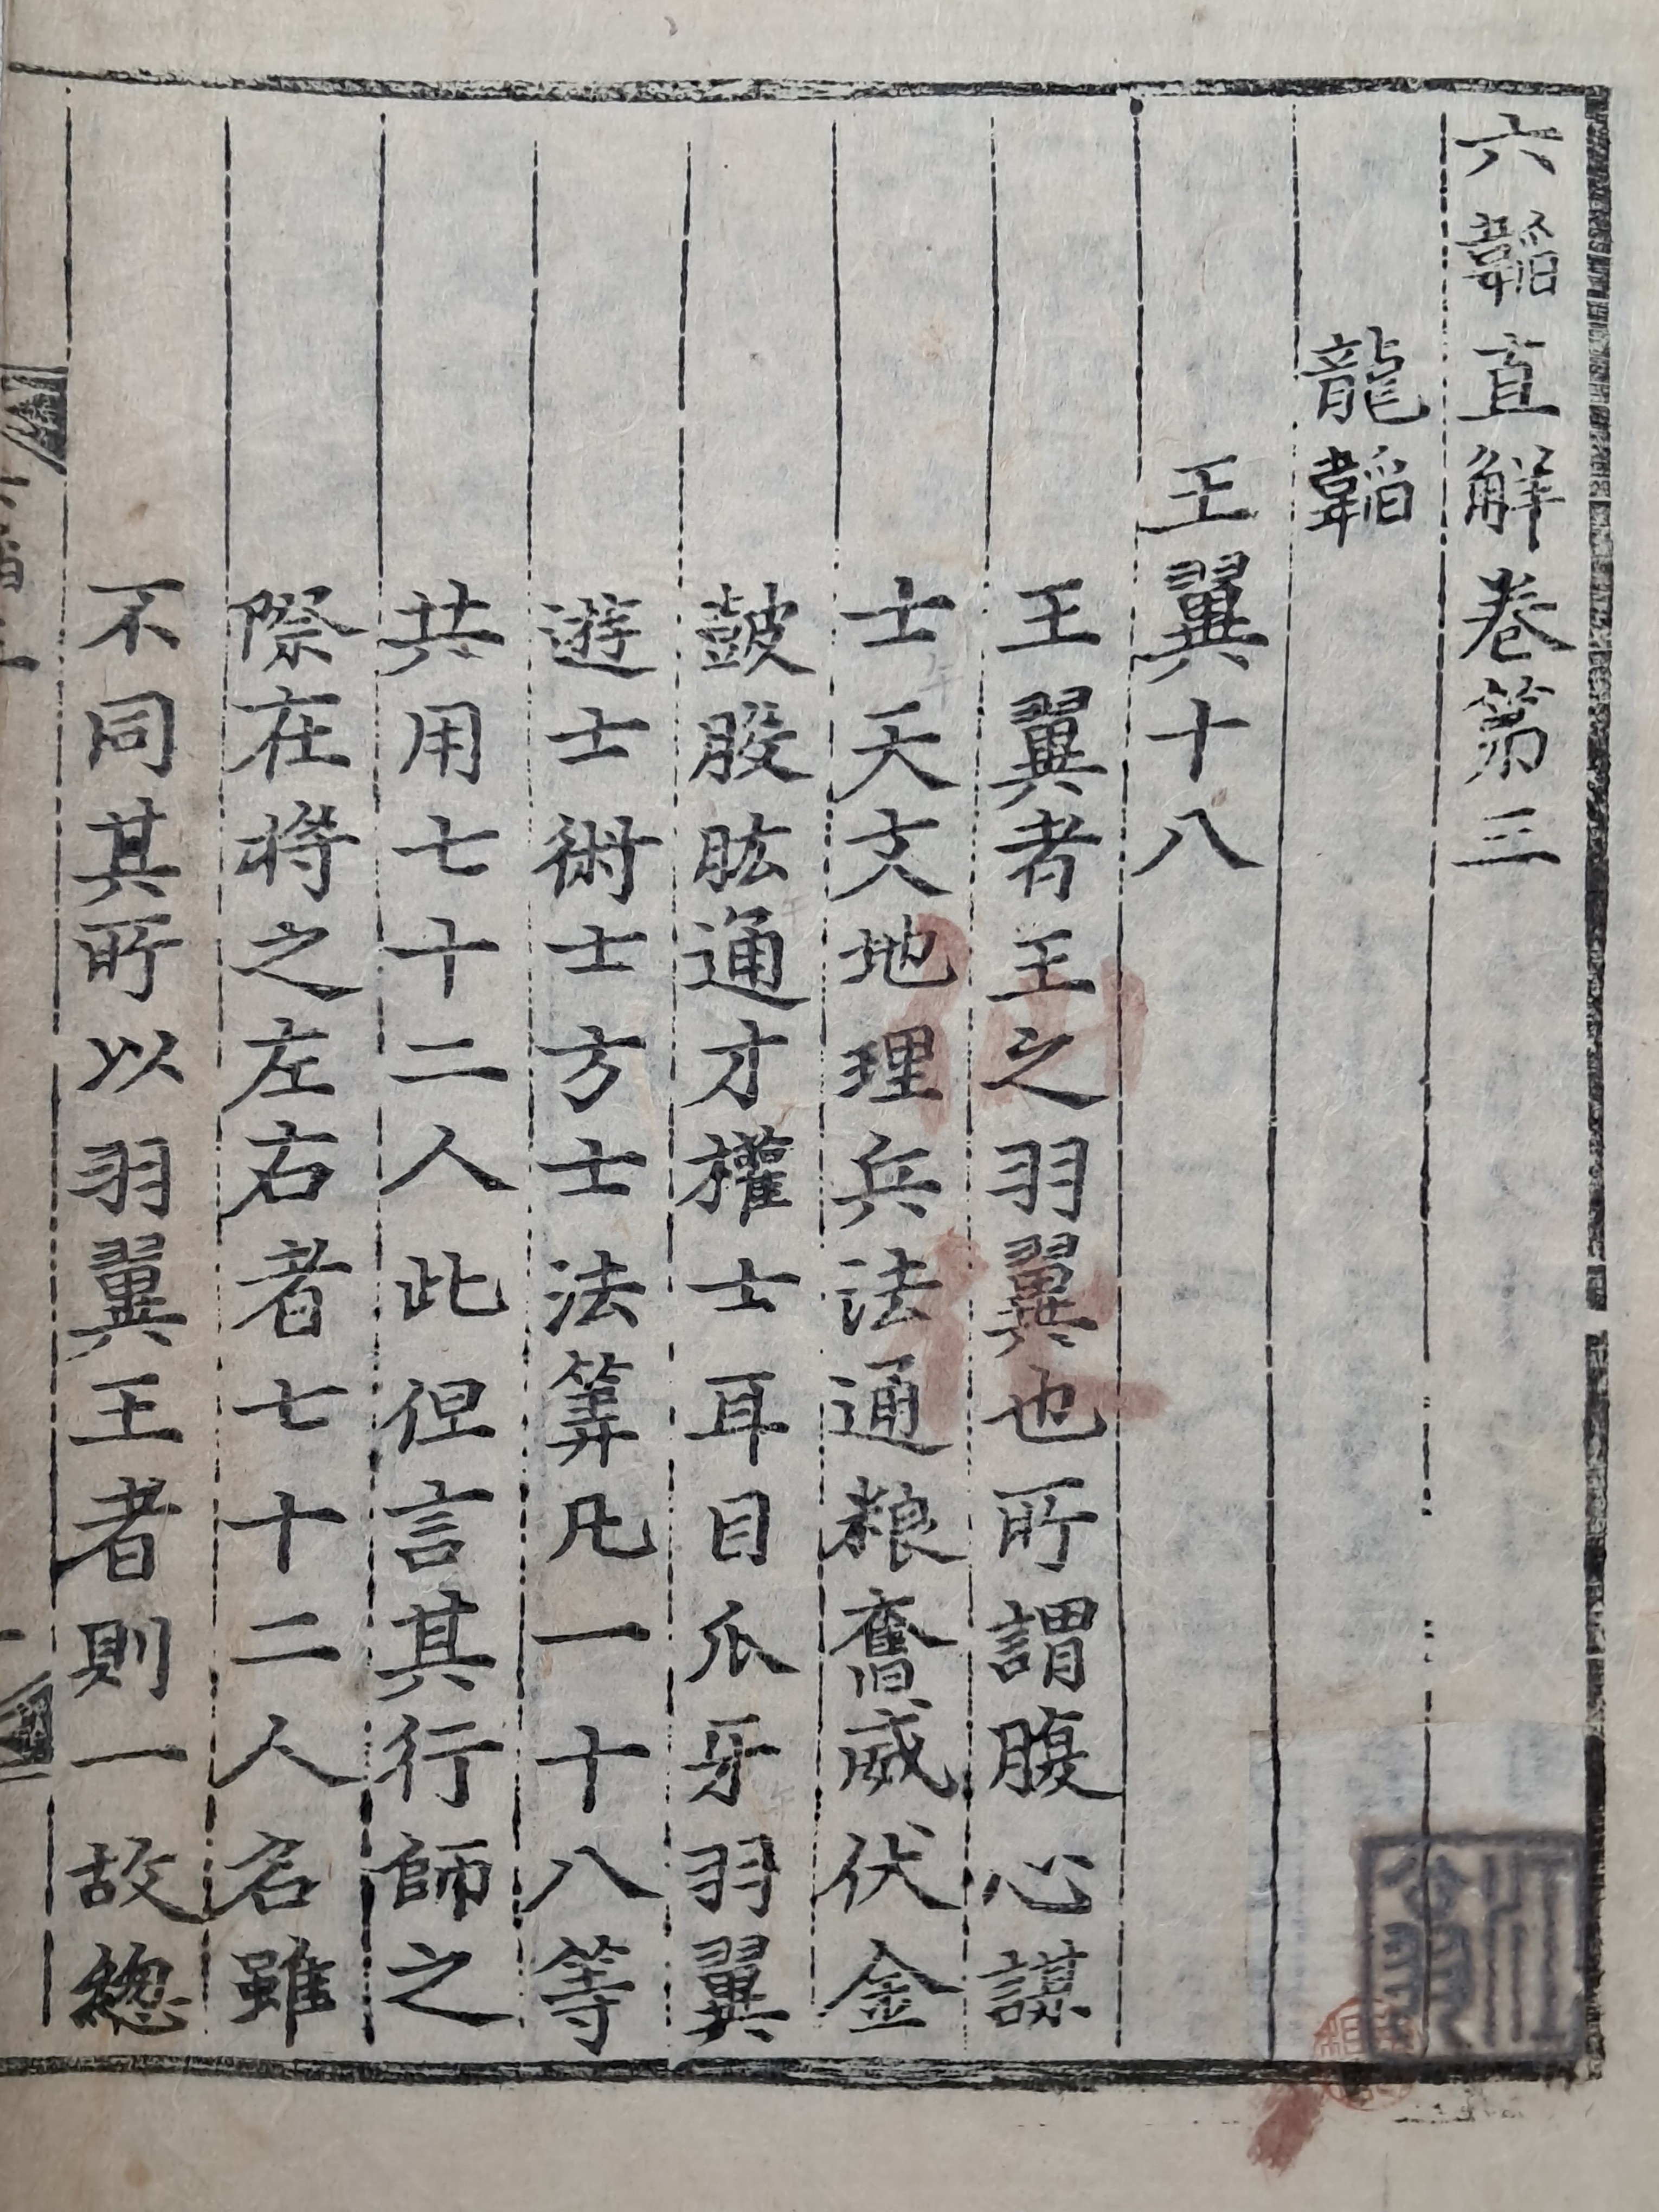 六韜直解卷第三
龍韜
王翼十八
王翼者王之羽翼也所謂腹心謀
士天文地理兵法通粮奮威伏金
鼓股肱通才權士耳目爪牙羽翼
遊士術士方士法筭凡一十八等
共用七十二人此但言其行師之
際在將之左右者七十二人名雖
不同其所以羽翼王者則一故總